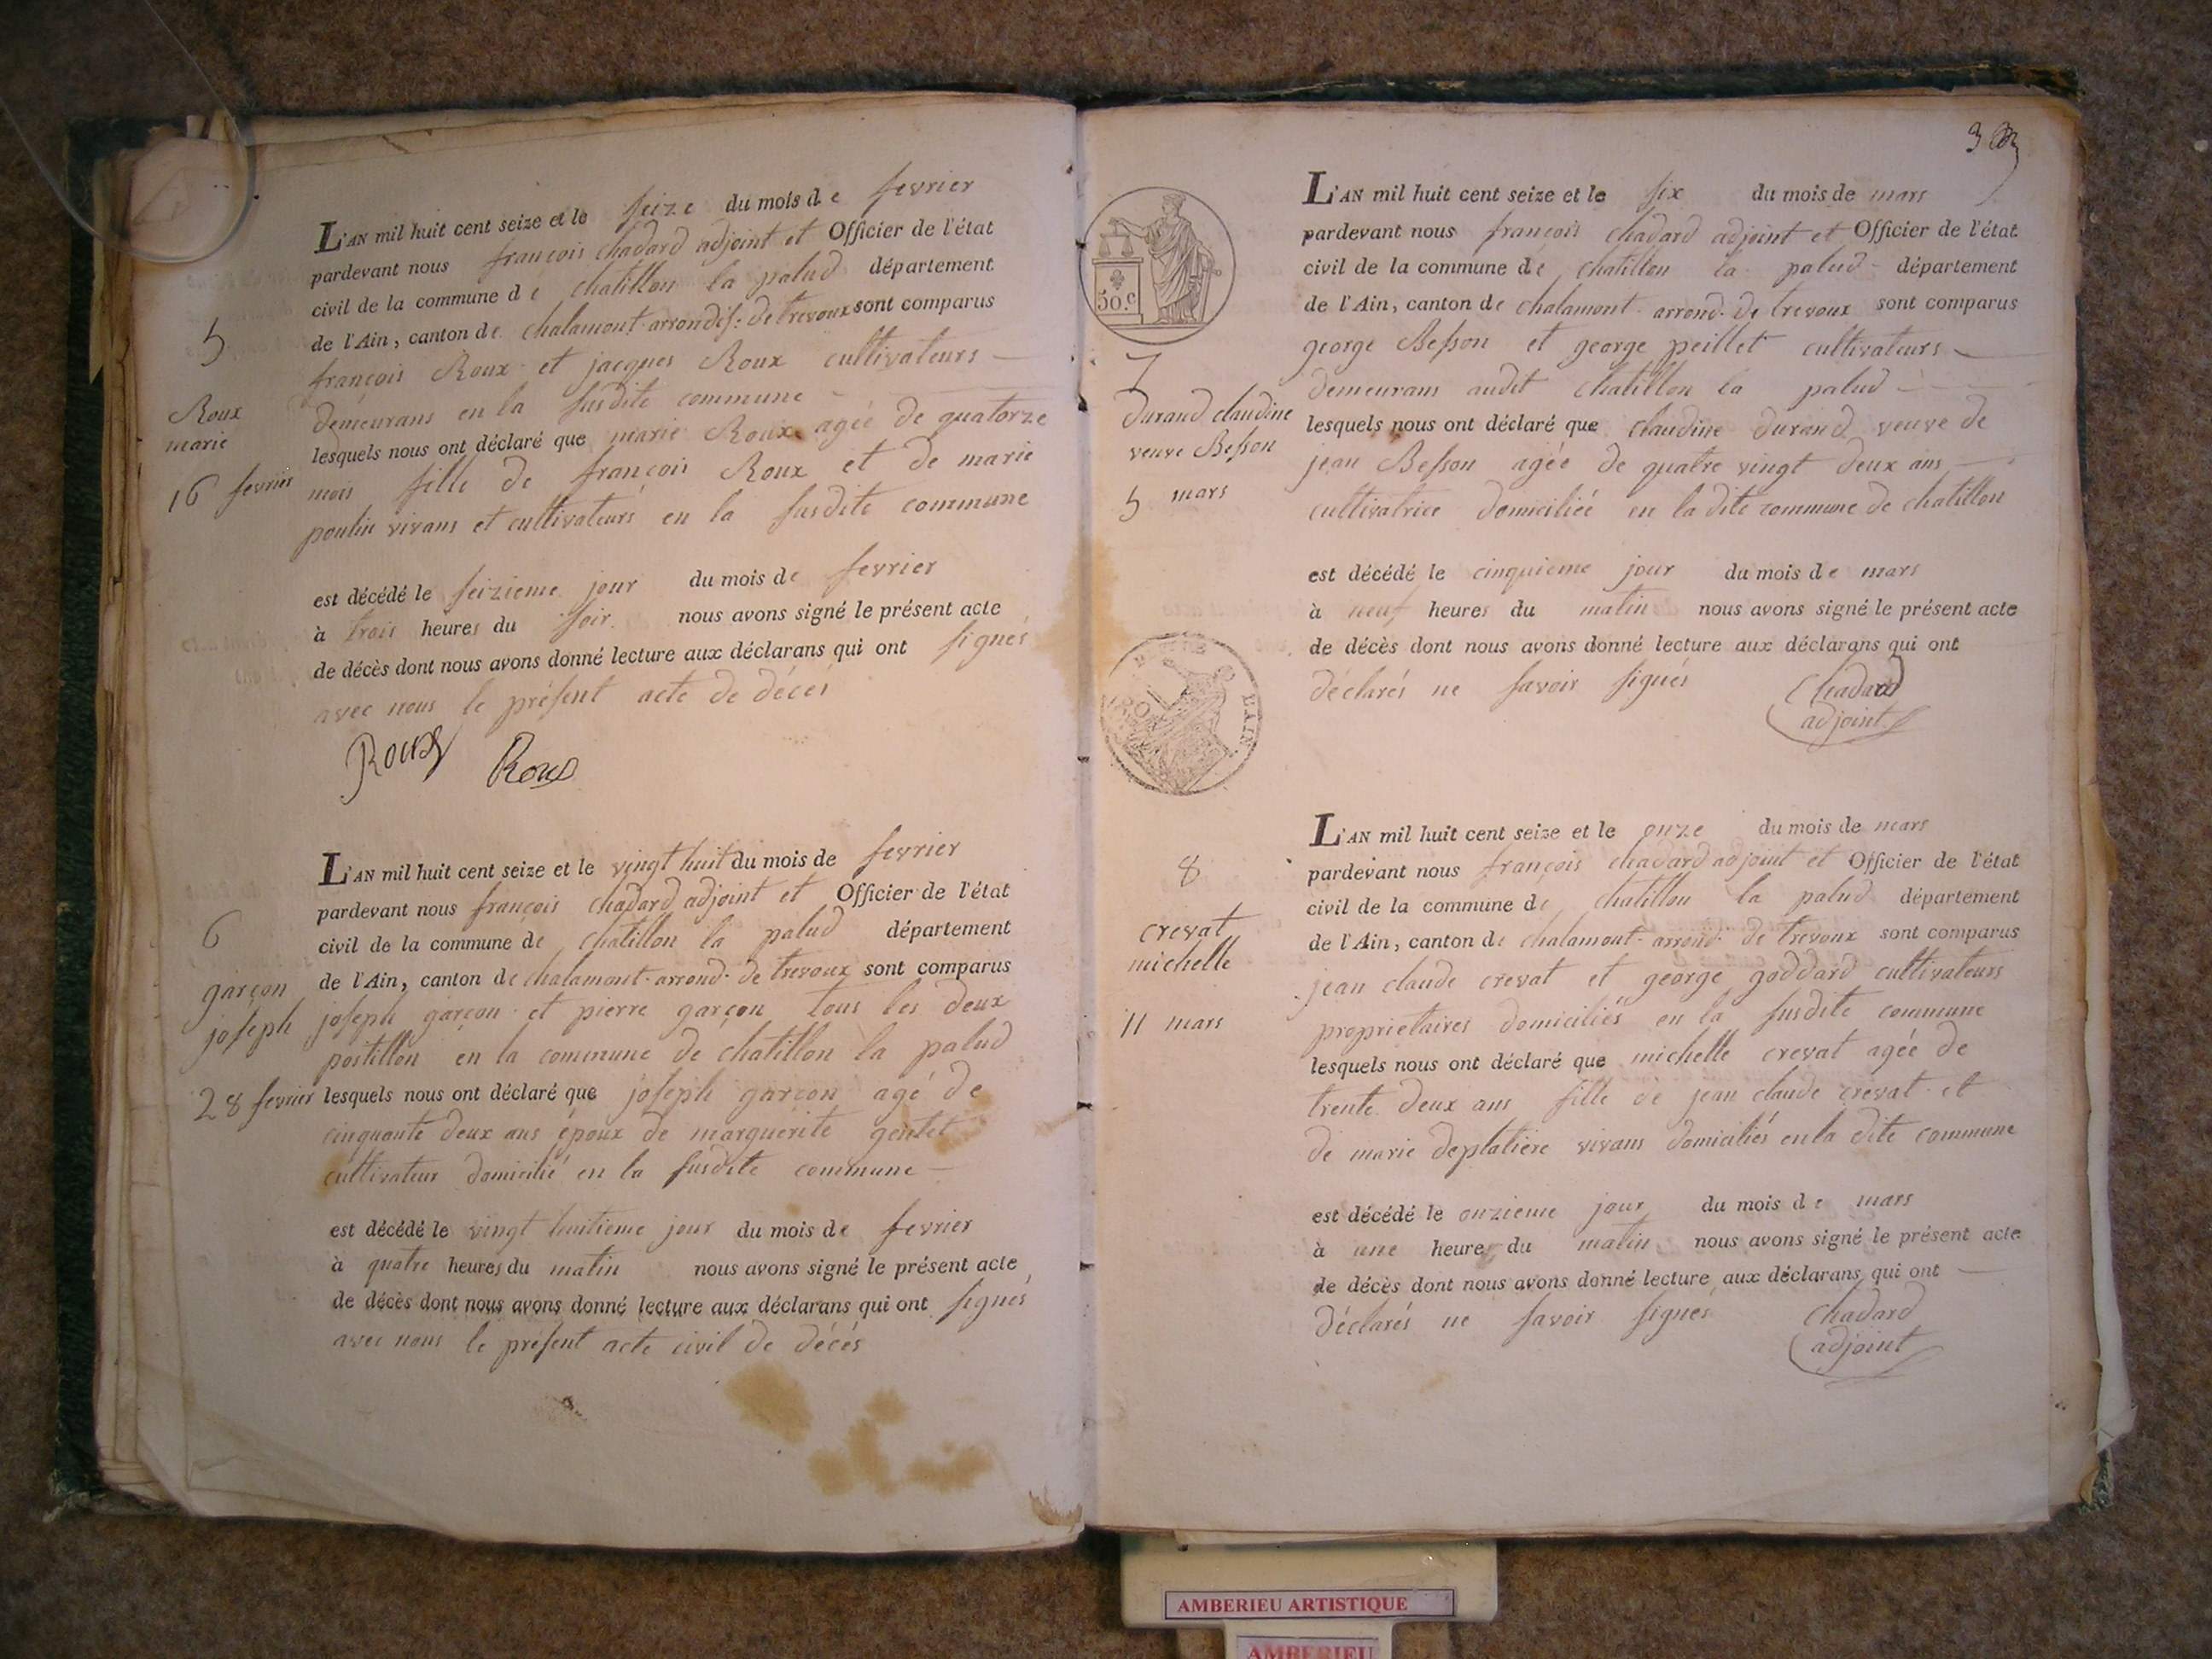 5
Roux
marie
16 fevrier
L'AN mil huit cent seize et le seize du mois de fevrier
pardevant nous françois chadard adjoint et Officier de l'état
civil de la commune de chatillon la palud département
de l'Ain, canton de chalamont arrondis: de trevoux sont comparus
françois Roux et jacques Roux cultivateurs
demeurans en la susdite commune
lesquels nous ont déclaré que marie Roux agée de quatorze
mois fille de françois Roux et de marie
poulin vivans et cultivateurs en la susdite commune
est décédé le seizieme jour du mois de fevrier
à trois heures du soir nous avons signé le présent acte
de décès dont nous avons donné lecture aux déclarans qui ont signés
avec nous le présent acte de décès
Roux Roux
6
garçon
joseph
28 fevrier
L'AN mil huit cent seize et le vingt huit du mois de fevrier
pardevant nous françois chadard adjoint et Officier de l'état
civil de la commune de chatillon la palud département
de l'Ain, canton de chalamont arrond. de trevoux sont comparus
joseph garçon et pierre garçon tous les deux
postillon en la commune de chatillon la palud
lesquels nous ont déclaré que joseph garçon agé de
cinquante deux ans époux de marguérite gentet
cultivateur domicilié en la susdite commune
est décédé le vingt huitieme jour du mois de fevrier
à quatre heures du matin nous avons signé le présent acte
de décès dont nous avons donné lecture aux déclarans qui ont signés
avec nous le présent acte civil de décès
3
50 c
7
durand claudine
veuve Besson
5 mars
L'AN mil huit cent seize et le six du mois de mars
pardevant nous françois chadard adjoint et Officier de l'état
civil de la commune de chatillon la palud département
de l'Ain, canton de chalamont arrond. de trevoux sont comparus
george Besson et george peillet cultivateurs
demeurans audit chatillon la palud
lesquels nous ont déclaré que claudine durand veuve de
jean Besson agée de quatre vingt deux ans
cultivatrice domiciliée en la dite commune de chatillon
est décédé le cinquieme jour du mois de mars
à neuf heures du matin nous avons signé le présent acte
de décès dont nous avons donné lecture aux déclarans qui ont
déclarés ne savoir signés Chadard
adjoint
8
crevat
michelle
11 mars
L'AN mil huit cent seize et le onze du mois de mars
pardevant nous françois chadard adjoint et Officier de l'état
civil de la commune de chatillon la palud département
de l'Ain, canton de chalamont arrond. de trevoux sont comparus
jean claude crevat et george goddard cultivateurs
proprietaires domiciliés en la susdite commune
lesquels nous ont déclaré que michelle crevat agée de
trente deux ans fille de jean claude crevat et
de marie deplatiere vivans domiciliés en la dite commune
est décédé le onzieme jour du mois de mars
à une heure du matin nous avons signé le présent acte
de décès dont nous avons donné lecture aux déclarans qui ont
déclarés ne savoir signés Chadard
adjoint
AMBERIEU ARTISTIQUE
AMBERIEU